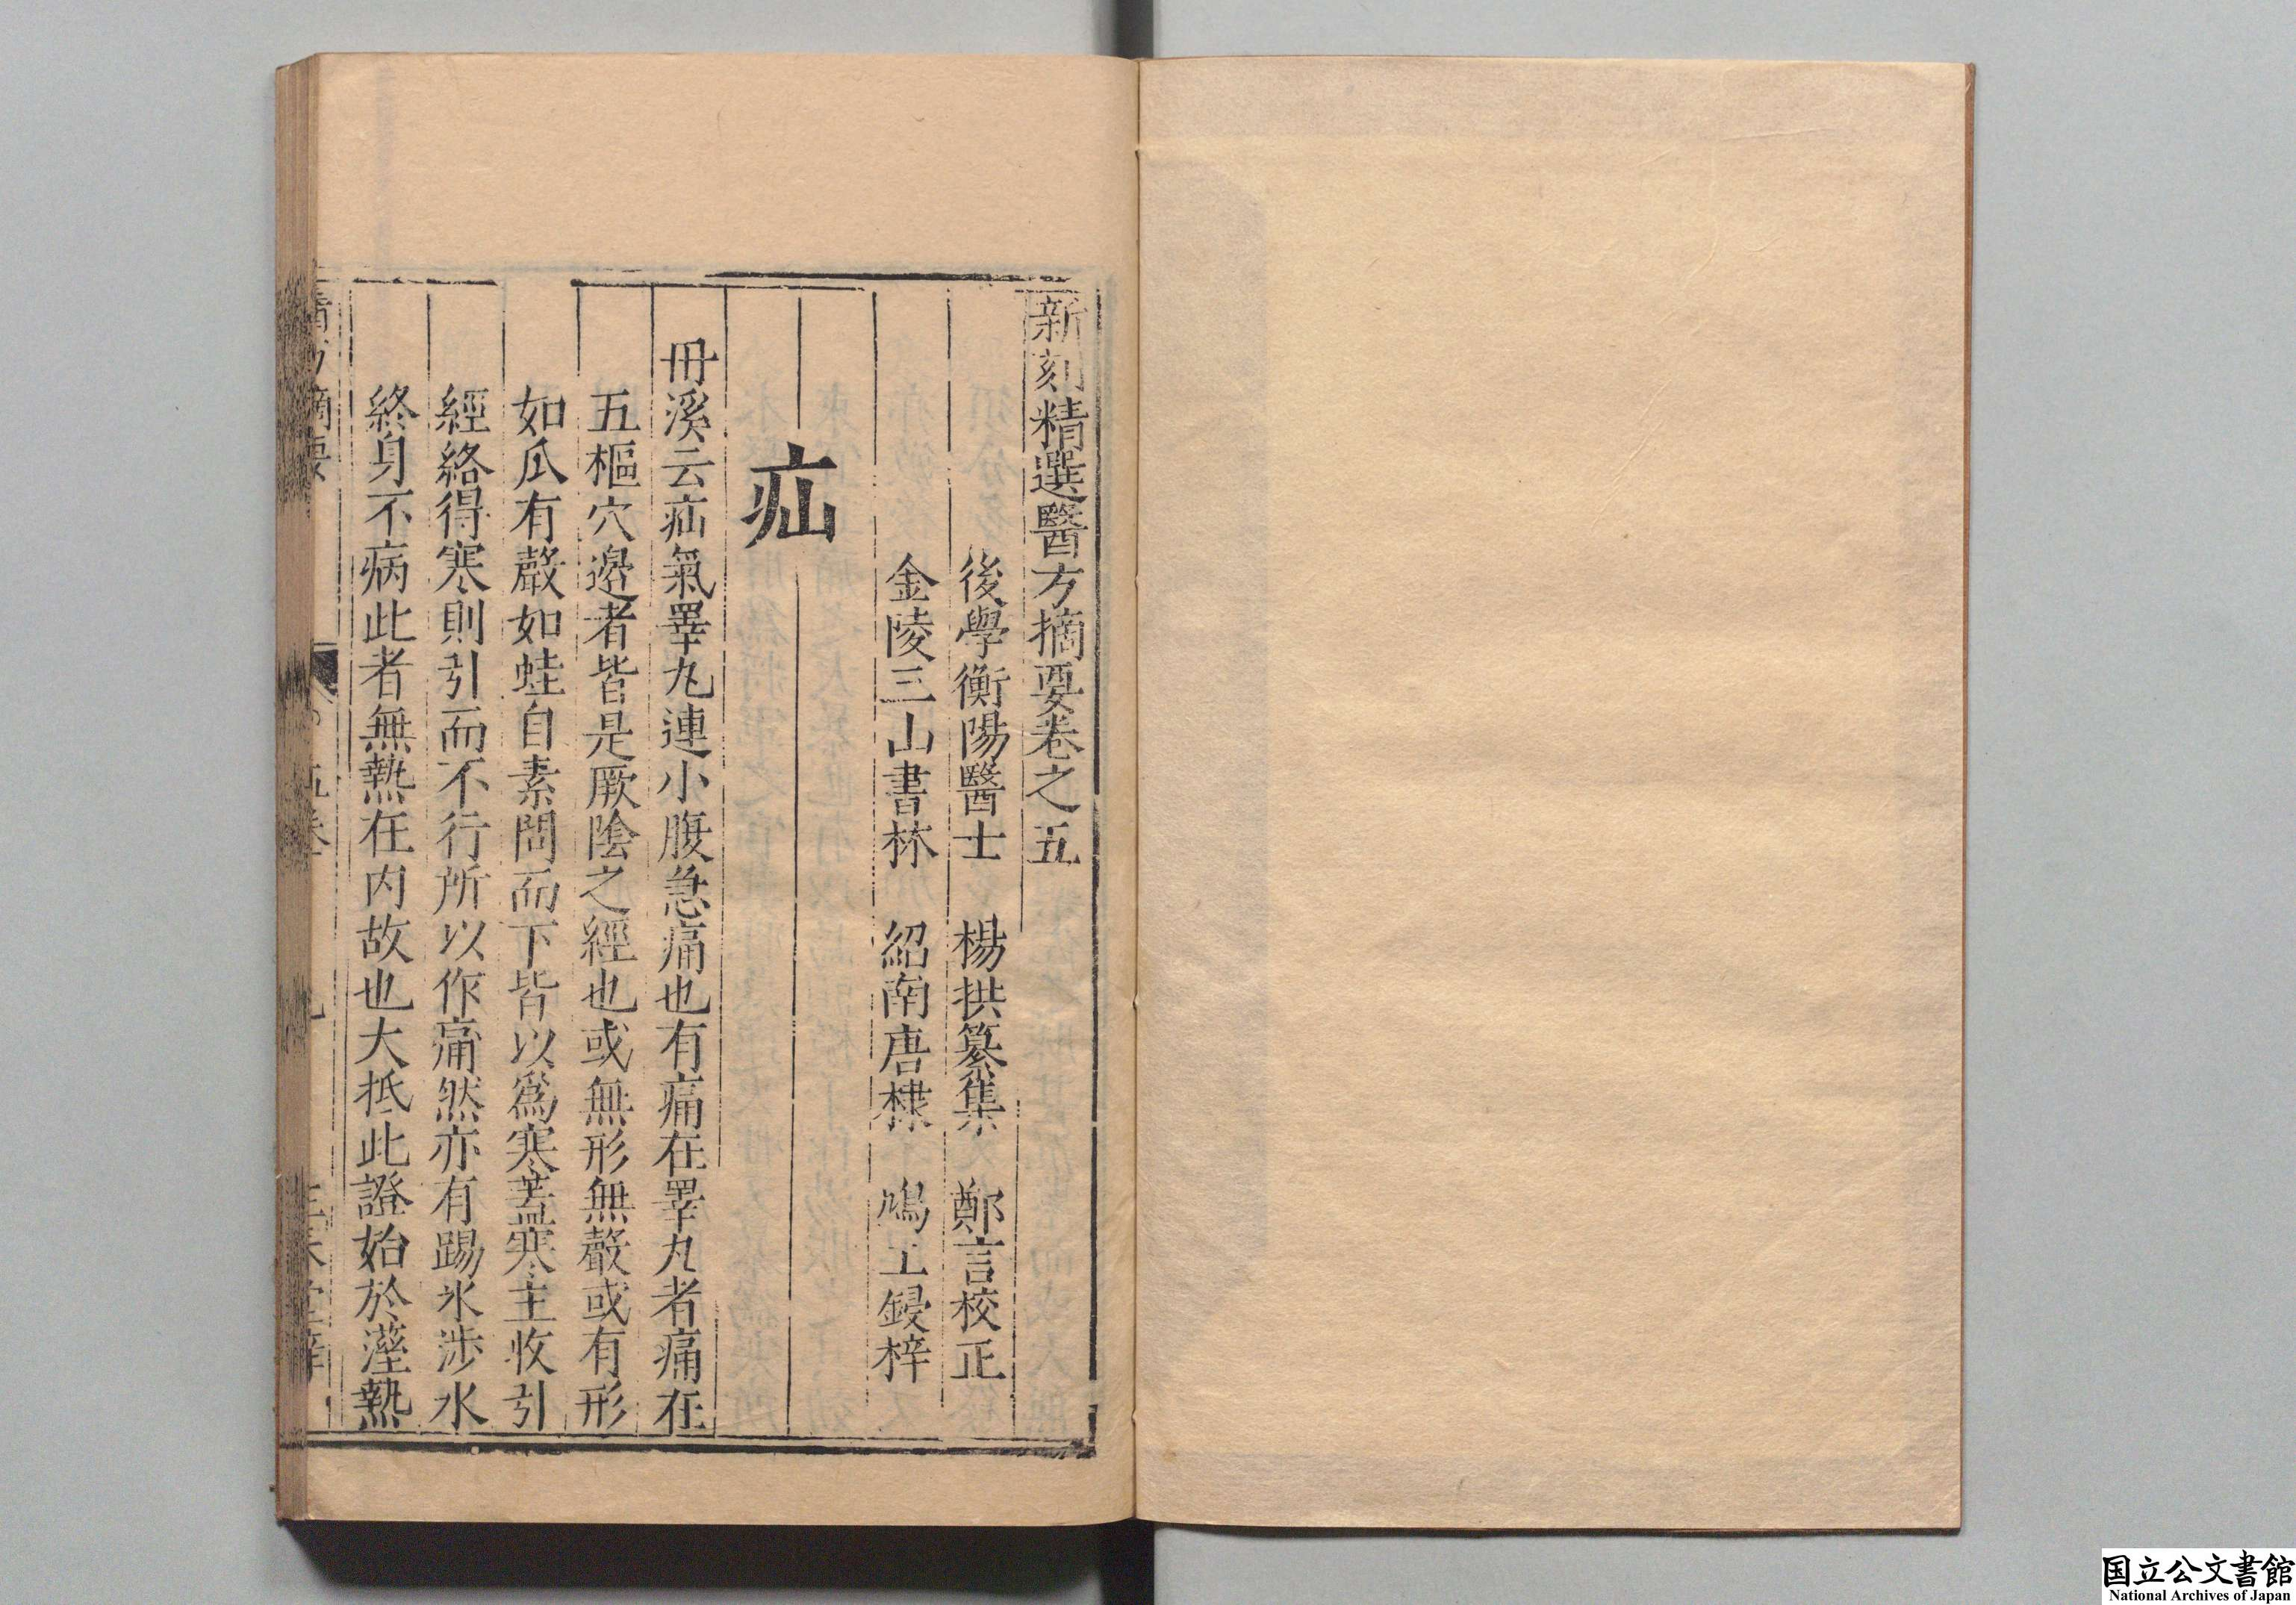 新刻精選醫方摘要卷之五
後學衡陽醫士 楊拱纂集 鄭言校正
金陵三山書林 紹南唐棣 鳩工鋟梓
疝
冊溪云疝氣睪丸連小腹急痛也有痛在睪丸者痛在
五樞穴邊者皆是厥陰之經也或無形無聲或有形
如瓜有聲如蛙自素問而下皆以為寒蓋寒主收引
經絡得寒則引而不行所以作痛然亦有踢氷涉水
終身不病此者無熱在内故也大抵此證始於溼熱
国立公文書館
National Archives of Japan